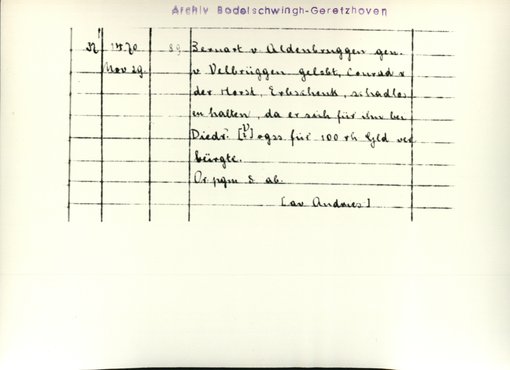 Archiv Bodelschwingh-Geretzhoven
1470 89 Bernart v Aldenbruggen gen.
Nov 29 v Velbrüggen gelobt, Conrad v
der Horst, Erbschenk, schadlos
zu halten, da er sich für ihn bei
Diedr. [?] für 100 rh Gld ver
bürgte.
Or pgm S ab.
[av Andries]